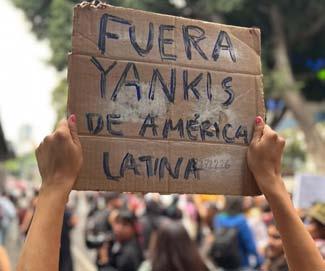 FUERA
YANKIS
DE AMÉRICA
LATINA